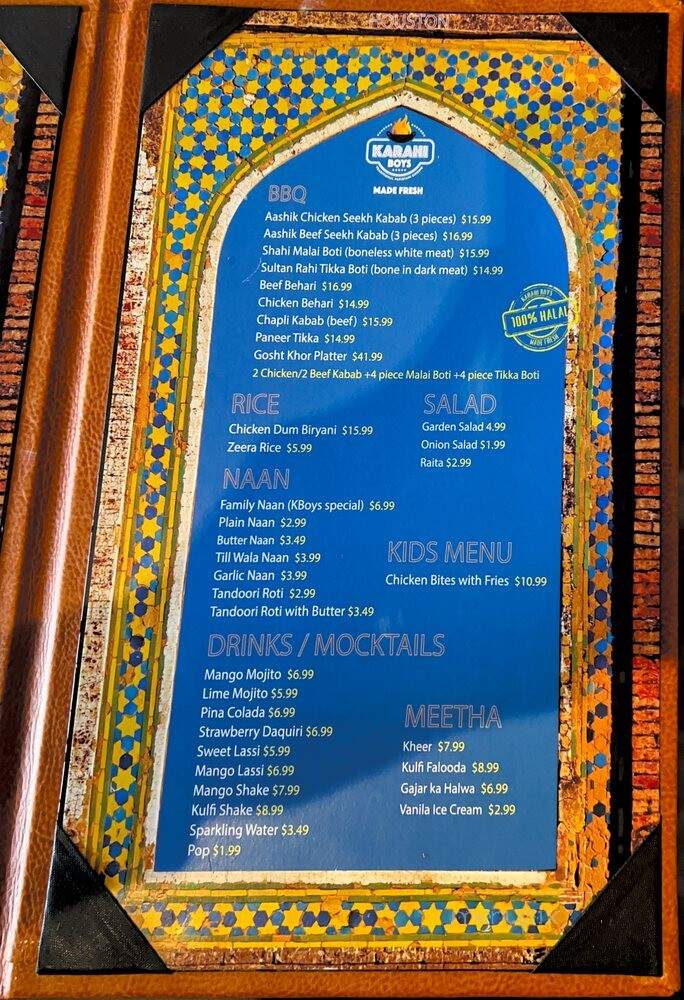 HOUSTON
KARAHI
BOYS
MADE FRESH
BBQ
Aashik Chicken Seekh Kabab (3 pieces) $15.99
Aashik Beef Seekh Kabab (3 pieces) $16.99
Shahi Malai Boti (boneless white meat) $15.99
Sultan Rahi Tikka Boti (bone in dark meat) $14.99
Beef Behari $16.99
Chicken Behari $14.99
Chapli Kabab (beef) $15.99
Paneer Tikka $14.99
Gosht Khor Platter $41.99
2 Chicken/2 Beef Kabab +4 piece Malai Boti +4 piece Tikka Boti
KARAHI BOYS
100% HALAL
MADE FRESH
RICE
Chicken Dum Biryani $15.99
Zeera Rice $5.99
SALAD
Garden Salad 4.99
Onion Salad $1.99
Raita $2.99
NAAN
Family Naan (KBoys special) $6.99
Plain Naan $2.99
Butter Naan $3.49
Till Wala Naan $3.99
Garlic Naan $3.99
Tandoori Roti $2.99
Tandoori Roti with Butter $3.49
KIDS MENU
Chicken Bites with Fries $10.99
DRINKS / MOCKTAILS
Mango Mojito $6.99
Lime Mojito $5.99
Pina Colada $6.99
Strawberry Daquiri $6.99
Sweet Lassi $5.99
Mango Lassi $6.99
Mango Shake $7.99
Kulfi Shake $8.99
Sparkling Water $3.49
Pop $1.99
MEETHA
Kheer $7.99
Kulfi Falooda $8.99
Gajar ka Halwa $6.99
Vanila Ice Cream $2.99